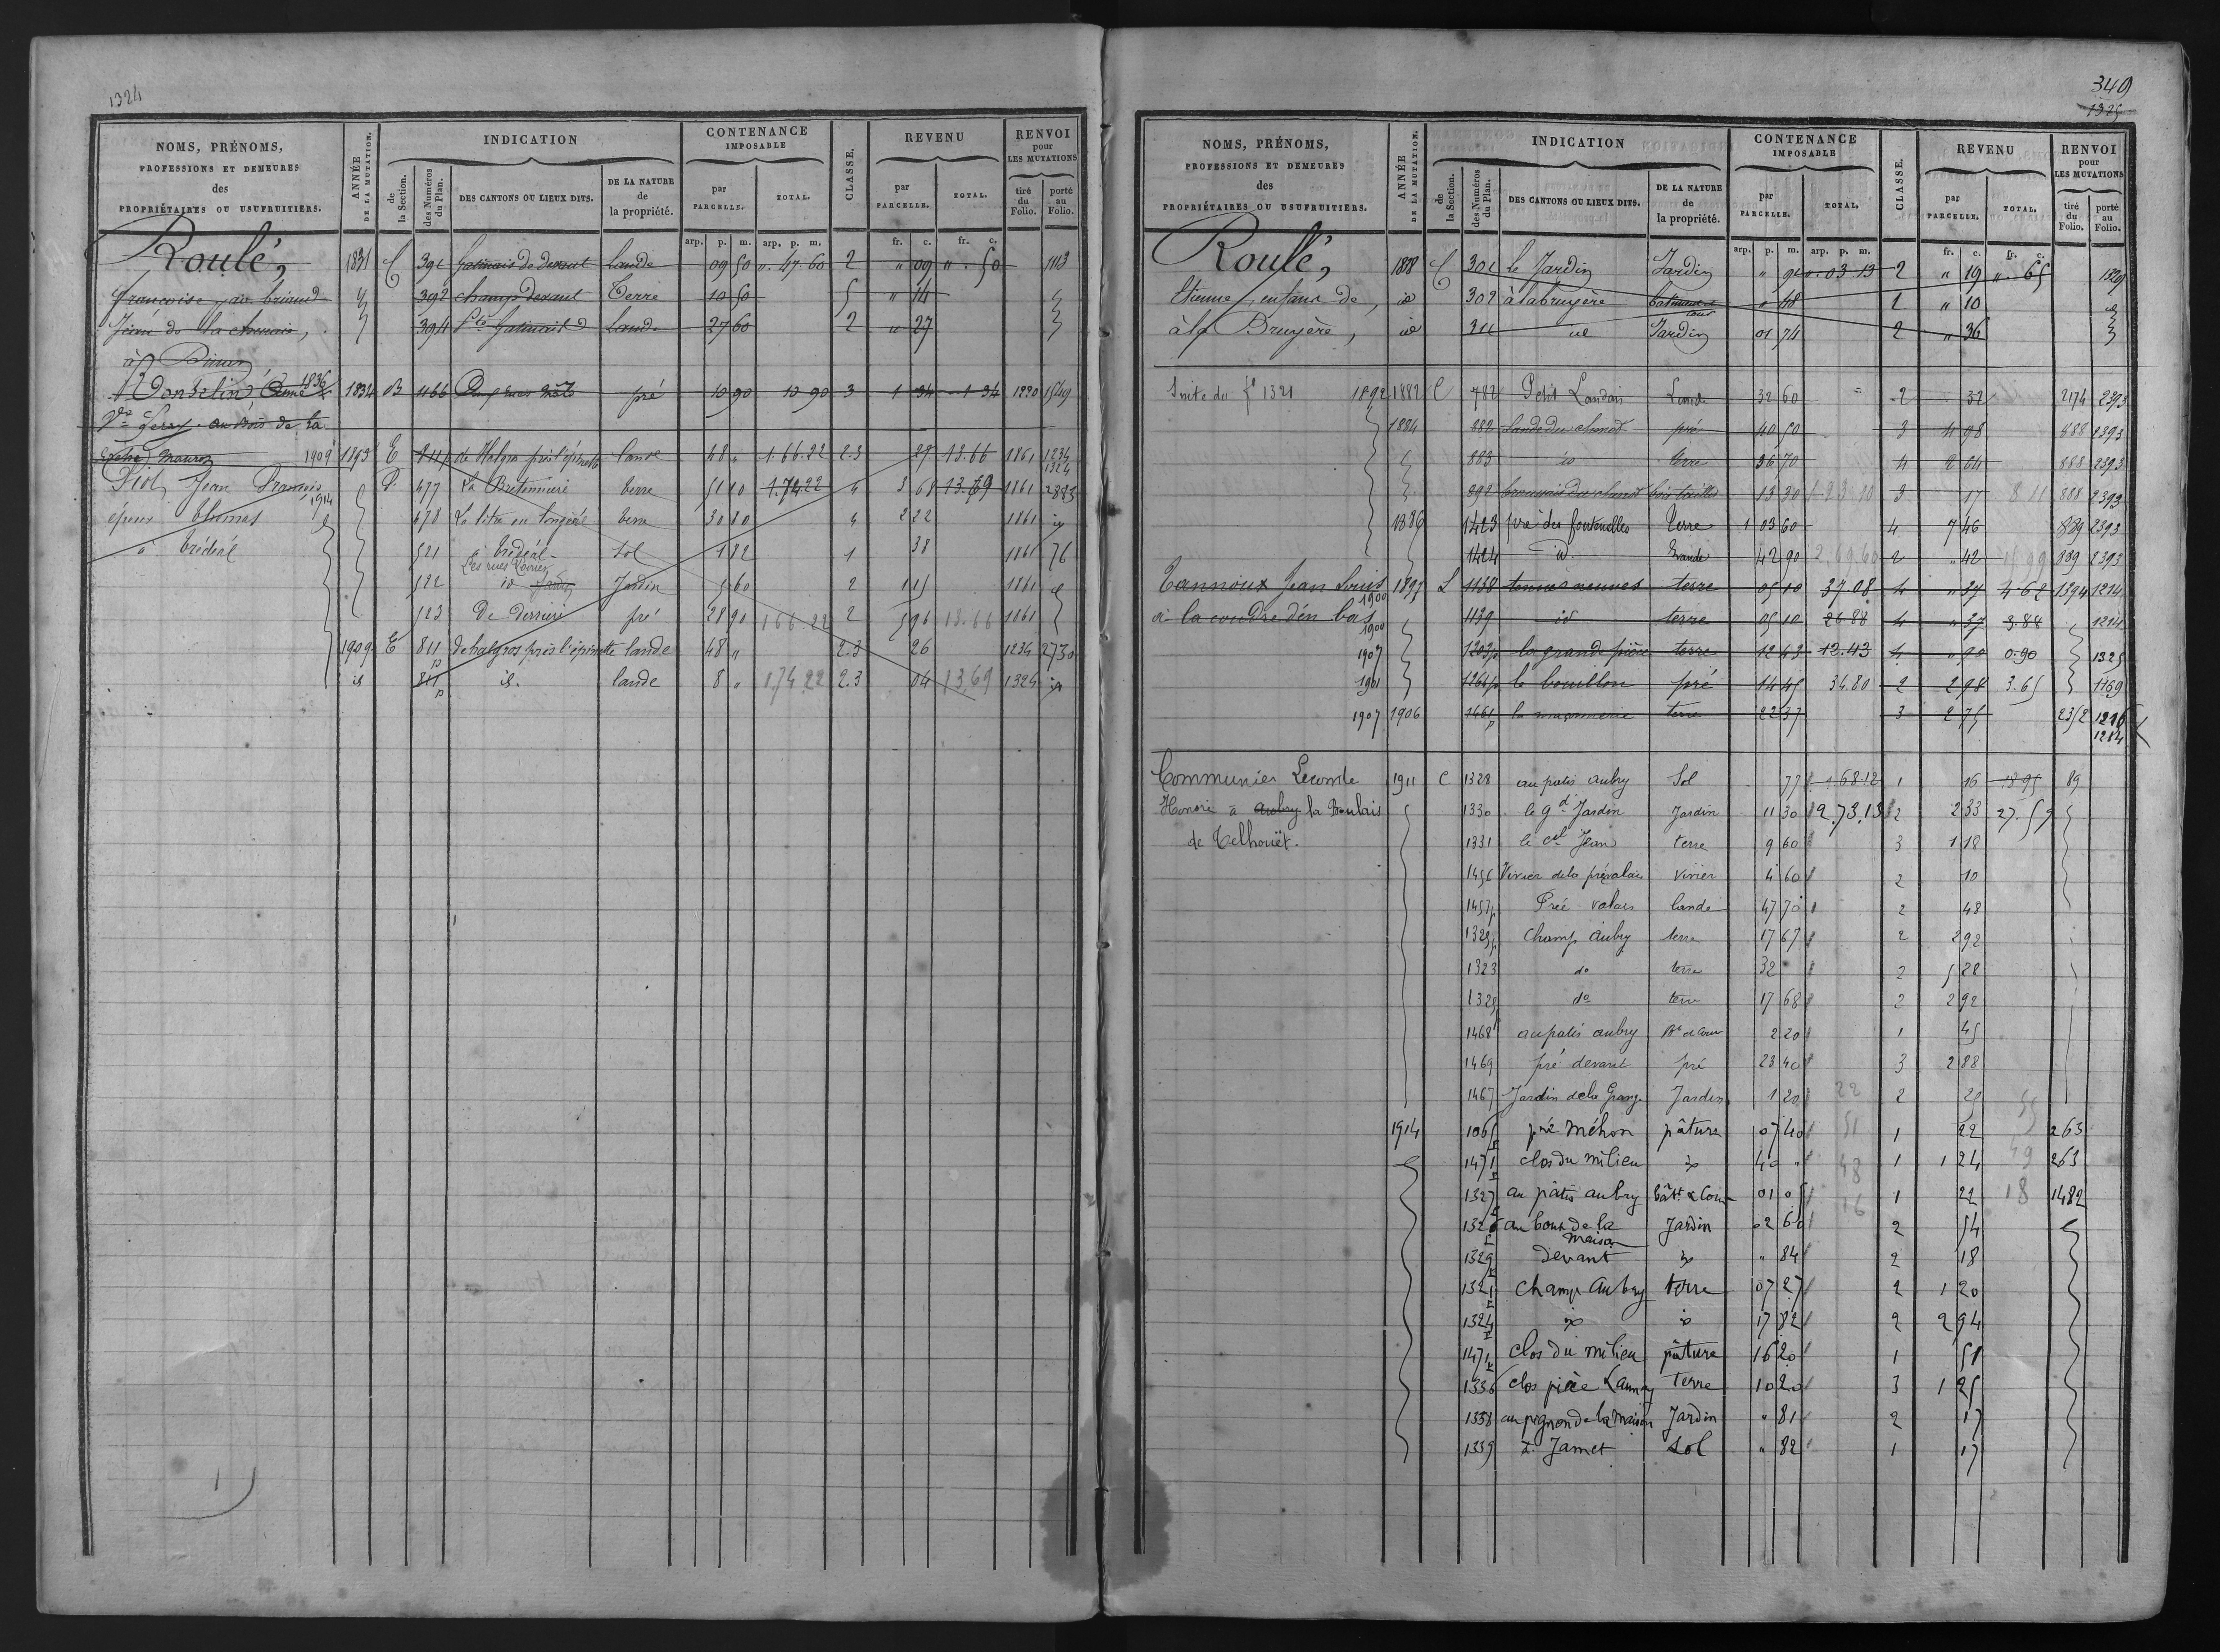 1324
NOMS, PRÉNOMS,
PROFESSIONS ET DEMEURES
des
PROPRIÉTAIRES OU USUFRUITIERS.
ANNÉE
DE LA MUTATION.
INDICATION
de
la Section.
des Numéros
du Plan.
DES CANTONS OU LIEUX DITS.
DE LA NATURE
de
la propriété.
CONTENANCE
IMPOSABLE
par
PARCELLE.
TOTAL.
CLASSE.
REVENU
par
PARCELLE.
TOTAL.
RENVOI
pour
LES MUTATIONS
tiré
du
Folio.
porté
au
Folio.
arp. p. m. arp. p. m. fr. c. fr. c.
Roulé, 1831 C 391 de devant Lande 09 50 " . 47 . 60 2 " 09 " . 50 1113
françoise 392 champ devant Terre 10 50 5 " 14
Jean de la 394 Lande 27 60 2 " 27
à
1836 1834 B 1166 pré 10 90 10 90 3 1 34 1 34 1220 1549
Ve au Bois de la
1909 1893 E 811p de Halgros près l'épinette lande 48 " 1.66.22 2.3 27 13.66 1861 1234
1324
Jean François D 477 La Bretonnière terre 51 10 1.74 22 4 3 68 13.69 1161 2823
1914
époux 478 terre 30 80 4 2 22 1161
à Trédéal 521 à Trédéal sol 1 82 1 38 1161 76
522 id Jardin 5 60 2 1 15 1161
523 De Derrière pré 28 90 1 66 22 2 5 96 13.66 1161
1909 E 811p de halgros près l'épinette lande 48 " 2.3 26 1234 2730
id 811p id. lande 8 " 1.74 22 2.3 04 13.69 1324
349
1325
NOMS, PRÉNOMS,
PROFESSIONS ET DEMEURES
des
PROPRIÉTAIRES OU USUFRUITIERS.
ANNÉE
DE LA MUTATION.
INDICATION
de
la Section.
des Numéros
du Plan.
DES CANTONS OU LIEUX DITS.
DE LA NATURE
de
la propriété.
CONTENANCE
IMPOSABLE
par
PARCELLE.
TOTAL.
CLASSE.
REVENU
par
PARCELLE.
TOTAL.
RENVOI
pour
LES MUTATIONS
tiré
du
Folio.
porté
au
Folio.
arp. p. m. arp. p. m. fr. c. fr. c.
Roulé, 1828 C 301 le Jardin Jardin " 91 " . 03 13 2 " 19 " . 65
Etienne, enfans de, id 302 à la bruyère batiment et cour " 48 1 " 10
à la Bruyère, id 311 id Jardin 01 74 2 " 36
Suite du fo 1321 1892 1882 C 782 Petit Landais Lande 32 60 2 32 2174 2393
1884 882 pré 40 50 3 4 98 888 2393
883 id terre 36 70 4 2 64 888 2393
892 bois taillis 13 30 1 23 10 3 17 8 11 888 2393
1886 1423 pré des fontenelles Terre 1 03 60 4 7 46 889 2393
1424 id. Lande 42 90 2.69.60 2 " 42 15 99 889 2393
Tannioux Jean Louis 1897 L 1138 terres neuves terre 05 10 37.08 4 " 37 4.62 1394 1214
1900
à la coudre d'en bas 1139 id terre 05 10 26.88 4 " 37 3.88 1214
1900
1907 1203p la grande pièce terre 12 43 12.43 4 " 90 0.90 1325
1901 1264p le bouillon pré 14 45 34.80 2 2 98 3.65 1169
1907 1906 1461p la maçonnerie terre 22 37 3 2 75 2352 1216
1214
Communier Lecomte 1911 C 1328 au patis aubry Sol 77 1 68 12 1 16 18 95 89
Honoré à Aubry la Boulais 1330 le gd Jardin Jardin 11 30 2.73.13 2 2 33 27.59
de Telhouët. 1331 le cul Jean terre 9 60 3 1 18
1456 Vivier de la prévalais vivier 4 60 2 10
1457p Pré valais lande 47 70 2 48
1325p Champ Aubry terre 17 67 2 2 92
1323 do terre 32 2 5 28
1325 do terre 17 68 2 2 92
1468 au patis aubry Bt et Cour 2 20 1 45
1469 pré devant pré 23 40 3 2 88
1467 Jardin de la Grange Jardin 1 20 22 2 25 55
1914 1065p pré Méhon pâture 07 40 51 1 22 263
1471p clos du milieu id 40 " 48 1 1 24 49 263
1327p au pâtis aubry bât. & Cour 01 05 16 1 22 18 1482
1326p au bout de la Maison Jardin 02 60 2 54
1329p devant id " 84 2 18
1321p Champ Aubry terre 07 27 2 1 20
1324p id id 17 82 2 2 94
1471p clos du milieu pâture 16 20 1 51
1336 clos pièce Launay terre 10 20 3 1 25
1338 au pignon de la maison Jardin " 81 2 17
1339 Jamet sol " 82 1 17